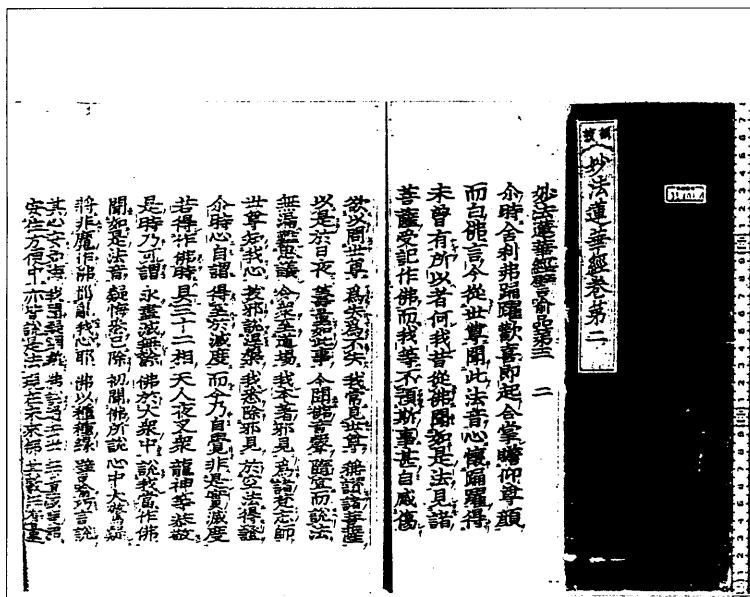 妙法蓮華經卷第二
妙法蓮華經譬喻品第三 二
尒時舍利弗踊躍歡喜即起合掌瞻仰尊顏
而白佛言今從世尊聞此法音心懷踊躍得
未曾有所以者何我昔從佛聞如是法見諸
菩薩受記作佛而我等不預斯事甚自感傷
欲以問世尊 爲失爲不失 我常見世尊 稱讚諸菩薩
以是於日夜 籌量如此事 今聞佛音聲 隨宜而說法
無漏難思議 令衆至道場 我本著邪見 爲諸梵志師
世尊知我心 拔邪說涅槃 我悉除邪見 於空法得證
尒時心自謂 得至於滅度 而今乃自覺 非是實滅度
若得作佛時 具三十二相 天人夜叉衆 龍神等恭敬
是時乃可謂 永盡滅無餘 佛於大衆中 說我當作佛
聞如是法音 疑悔悉已除 初聞佛所說 心中大驚疑
將非魔作佛 惱亂我心耶 佛以種種緣 譬喻巧言說
其心安如海 我聞疑網斷 佛說過去世 無量滅度佛
安住方便中 亦皆說是法 現在未來佛 其數無有量